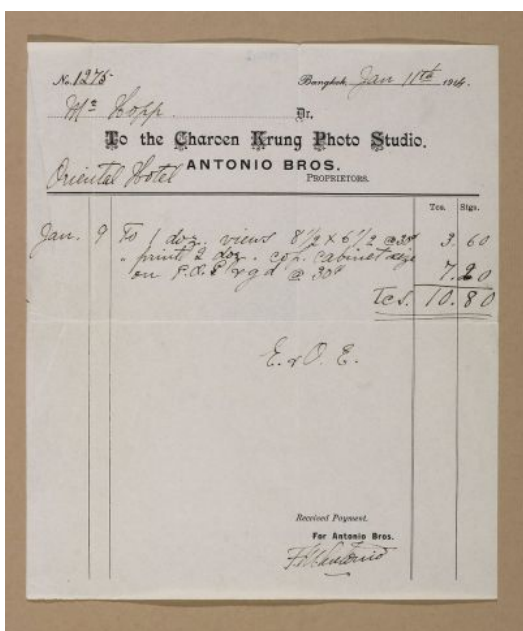 No. 1275
Bangkok, Jan 11th 1914.
Mr Hopp. Dr.
To the Charoen Krung Photo Studio.
ANTONIO BROS.
Oriental Hotel
PROPRIETORS.
Tcs. Stgs.
Jan. 9 To 1 doz. views 8 1/2 x 6 1/2 @ 30 3.60
" print 2 doz. cop. cabinet size
on P.O.P. & gd @ 30 7.20
Tcs. 10.80
E. & O. E.
Received Payment.
For Antonio Bros.